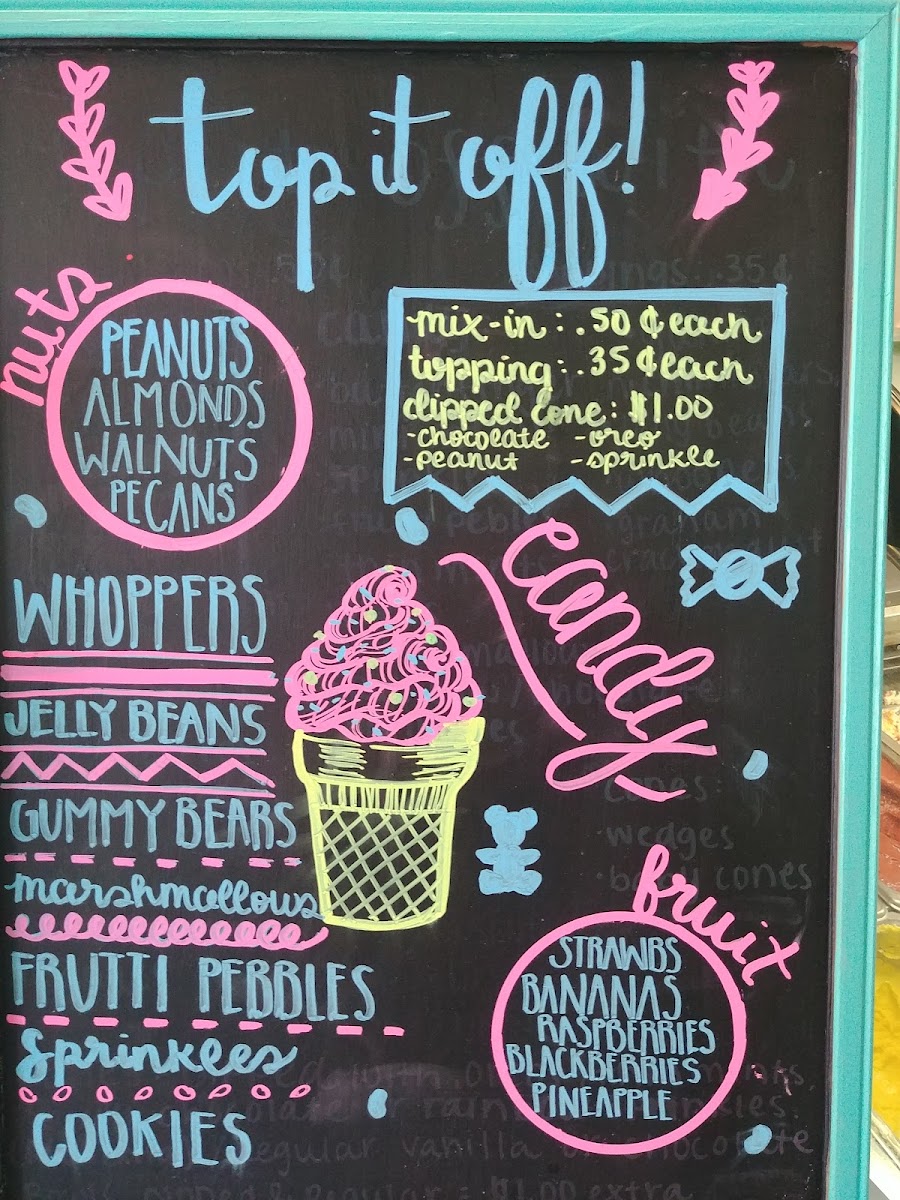 top it off!
nuts
PEANUTS
ALMONDS
WALNUTS
PECANS
mix-in : .50 ¢ each
topping: .35 ¢ each
dipped cone: $1.00
-chocolate -oreo
-peanut -sprinkle
candy
WHOPPERS
JELLY BEANS
GUMMY BEARS
marshmallows
FRUTTI PEBBLES
Sprinkles
COOKIES
fruit
STRAWBS
BANANAS
RASPBERRIES
BLACKBERRIES
PINEAPPLE
cones:
·wedges
·baby cones